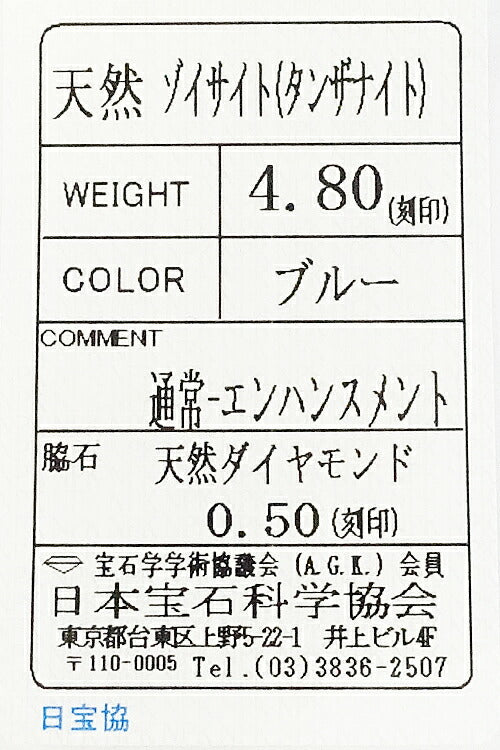 天然 ゾイサイト(タンザナイト)
WEIGHT 4.80(刻印)
COLOR ブルー
COMMENT
通常-エンハンスメント
脇石 天然ダイヤモンド
0.50(刻印)
宝石学学術協議会 (A.G.K.) 会員
日本宝石科学協会
東京都台東区上野5-22-1 井上ビル4F
〒110-0005 Tel.(03)3836-2507
日宝協